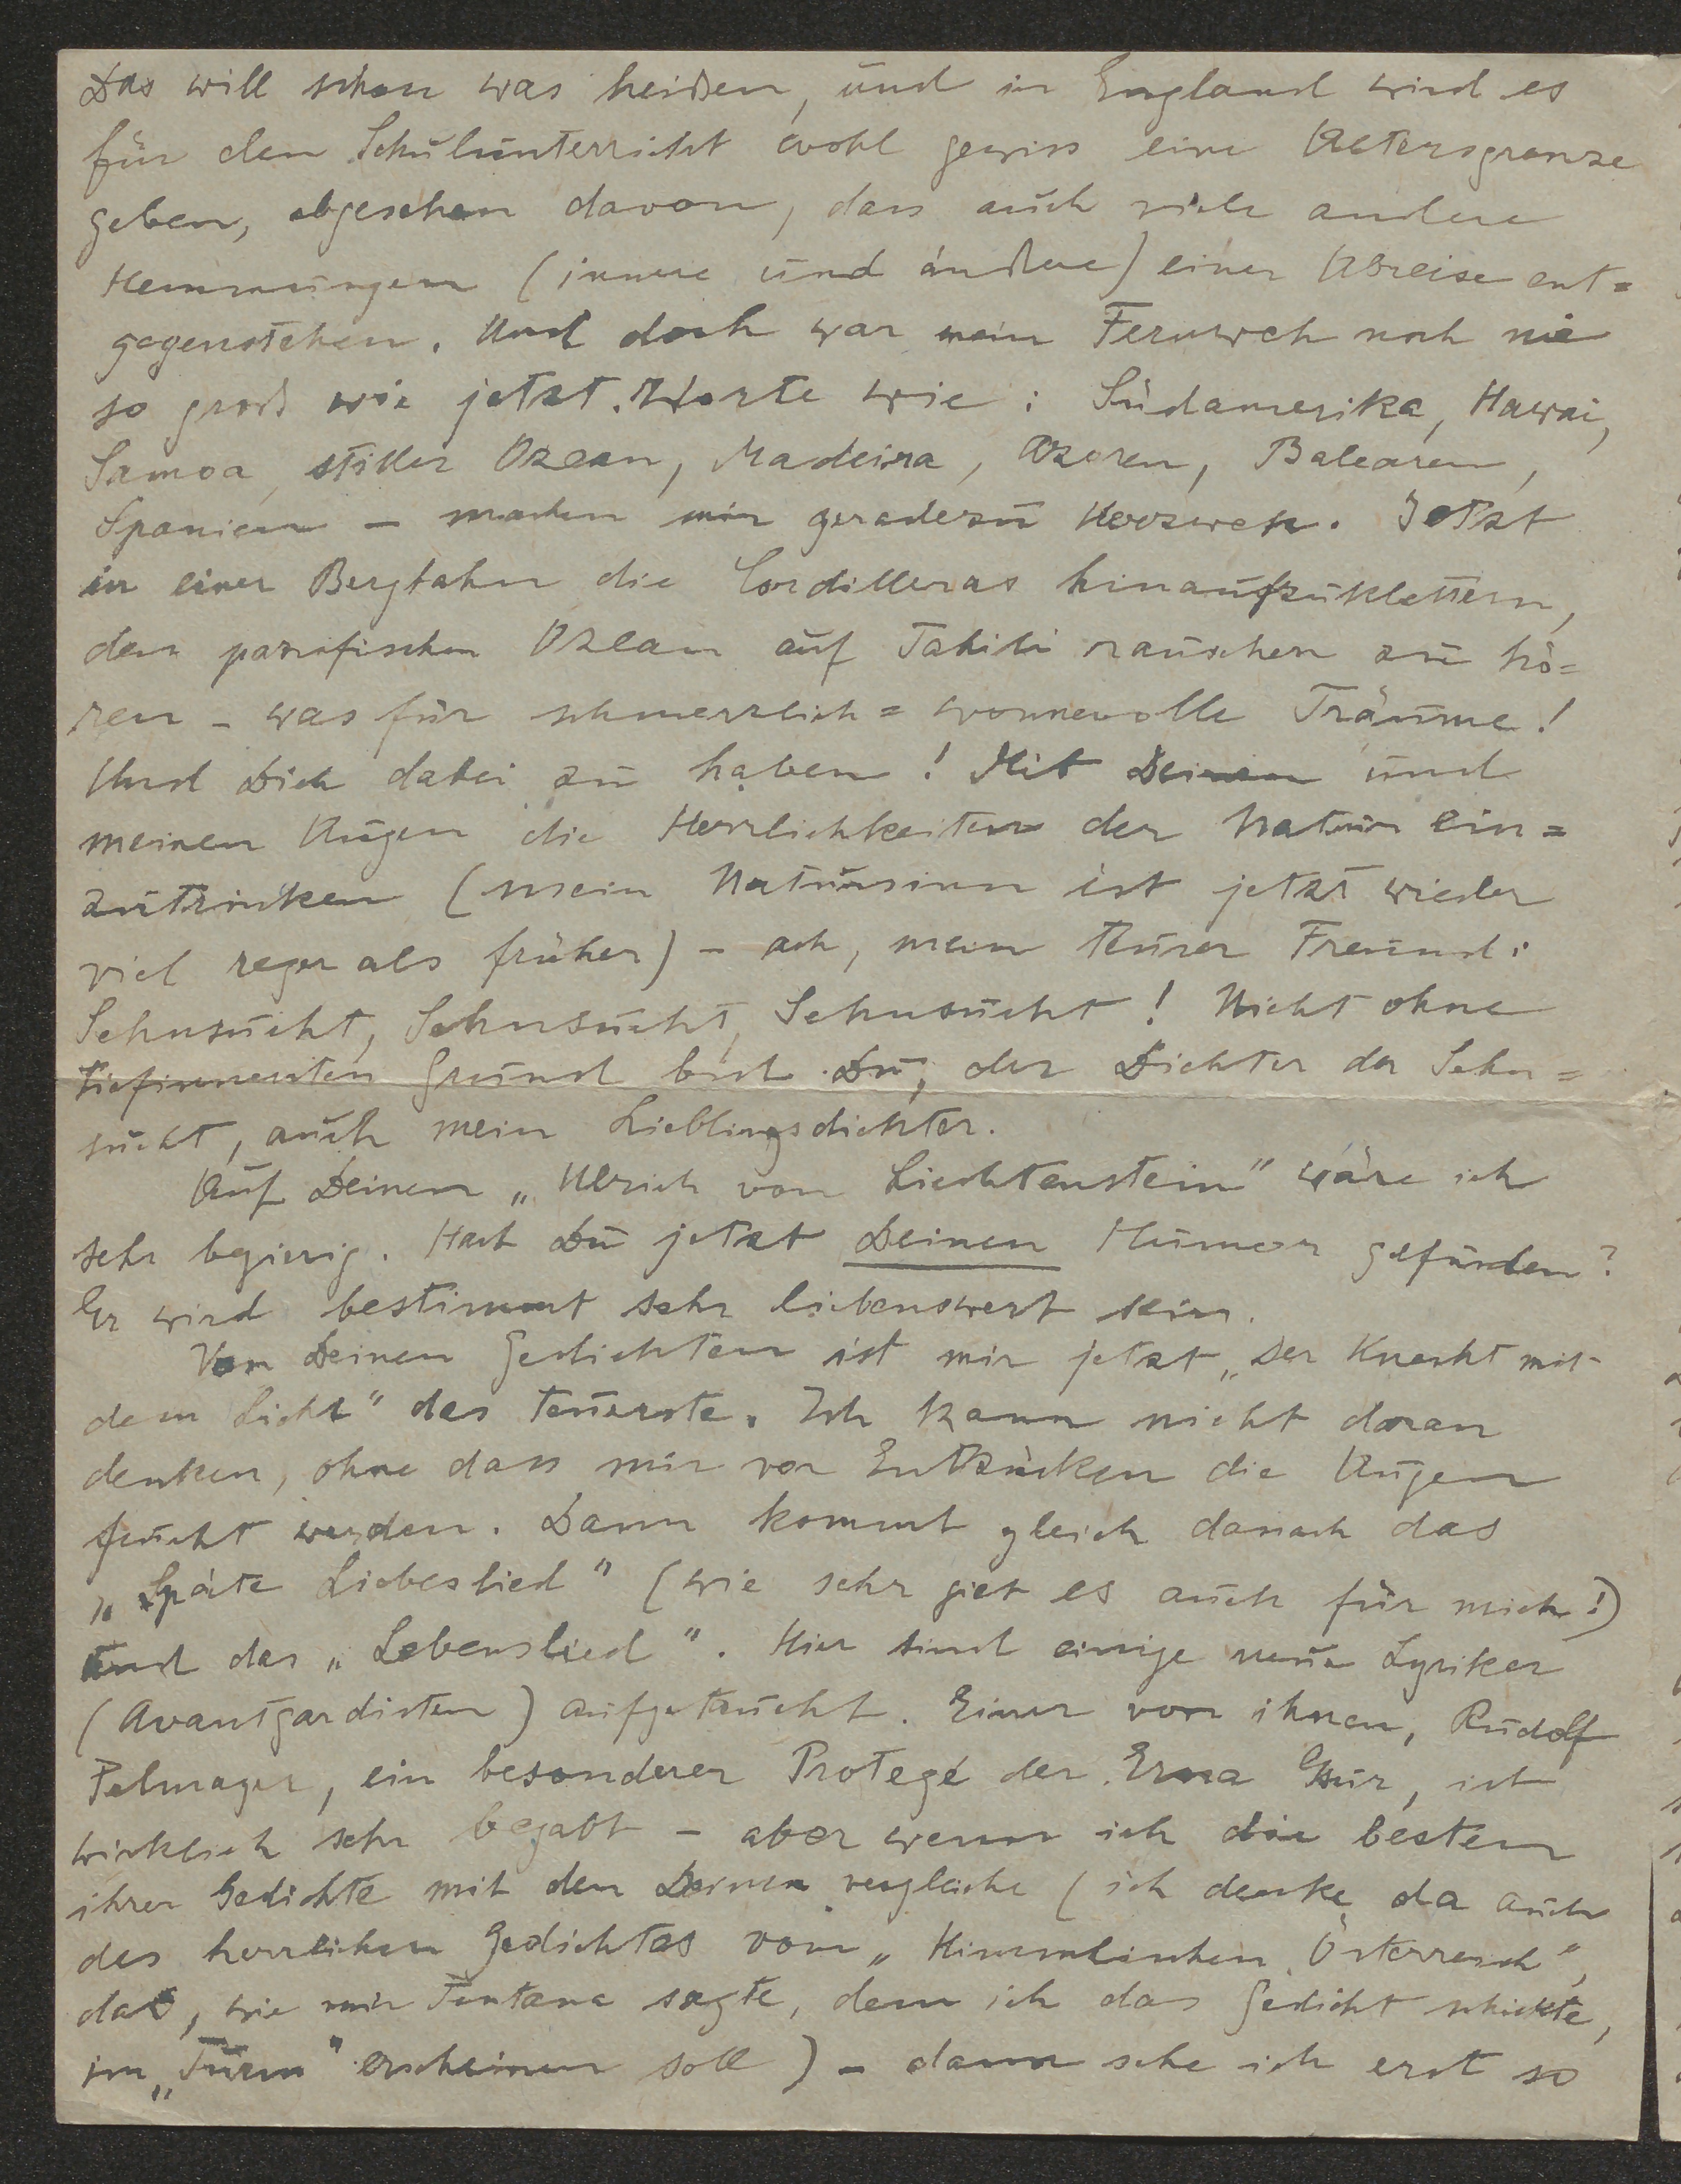 Das will schon was heißen, und in England wird es
für den Schulunterricht wohl gewiss eine Altersgrenze
geben, abgesehen davon, dass auch viele andere
Hemmungen (innere und äußere) einer Abreise ent=
gegenstehen. Und doch war mein Fernweh noch nie
so groß wie jetzt. Worte wie: Südamerika, Hawai,
Samoa, stiller Ozean, Madeira, Azoren, Balearen,
Spanien – machen mir geradezu Herzweh. Jetzt
in einer Bergbahn die Cordilleras hinaufzuklettern,
den pazifischen Ozean auf Tahiti rauschen zu hö=
ren – was für schmerzlich = wonnevolle Träume!
Und Dich dabei zu haben! Mit Deinen und
meinen Augen die Herrlichkeiten der Natur ein=
zutrinken (mein Natursinn ist jetzt wieder
viel reger als früher) – ach, mein teurer Freund:
Sehnsucht, Sehnsucht, Sehnsucht! Nicht ohne
tiefinnersten Grund bist Du, der Dichter der Sehn=
sucht, auch mein Lieblingsdichter.
Auf Deinen „Ulrich von Liechtenstein" wäre ich
sehr begierig. Hast Du jetzt Deinen Humor gefunden?
Er wird bestimmt sehr liebenswert sein.
Von Deinen Gedichten ist mir jetzt „Der Knecht mit
dem Licht" das teuerste. Ich kann nicht daran
denken, ohne dass mir vor Entzücken die Augen
feucht werden. Dann kommt gleich danach das
„Späte Liebeslied" (wie sehr gilt es auch für mich!)
und das „Lebenslied". Hier sind einige neue Lyriker
(Avantgardisten) aufgetaucht. Einer von ihnen, Rudolf
Felmayer, ein besonderer Protegé der Erna, ist
wirklich sehr begabt – aber wenn ich die besten
ihrer Gedichte mit den Deinen vergleiche (ich denke da auch
des herrlichen Gedichtes vom „Himmlischen Österreich",
das, wie mir Fontana sagte, dem ich das Gedicht schickte,
im „Turm" erscheinen soll) – dann sehe ich erst so